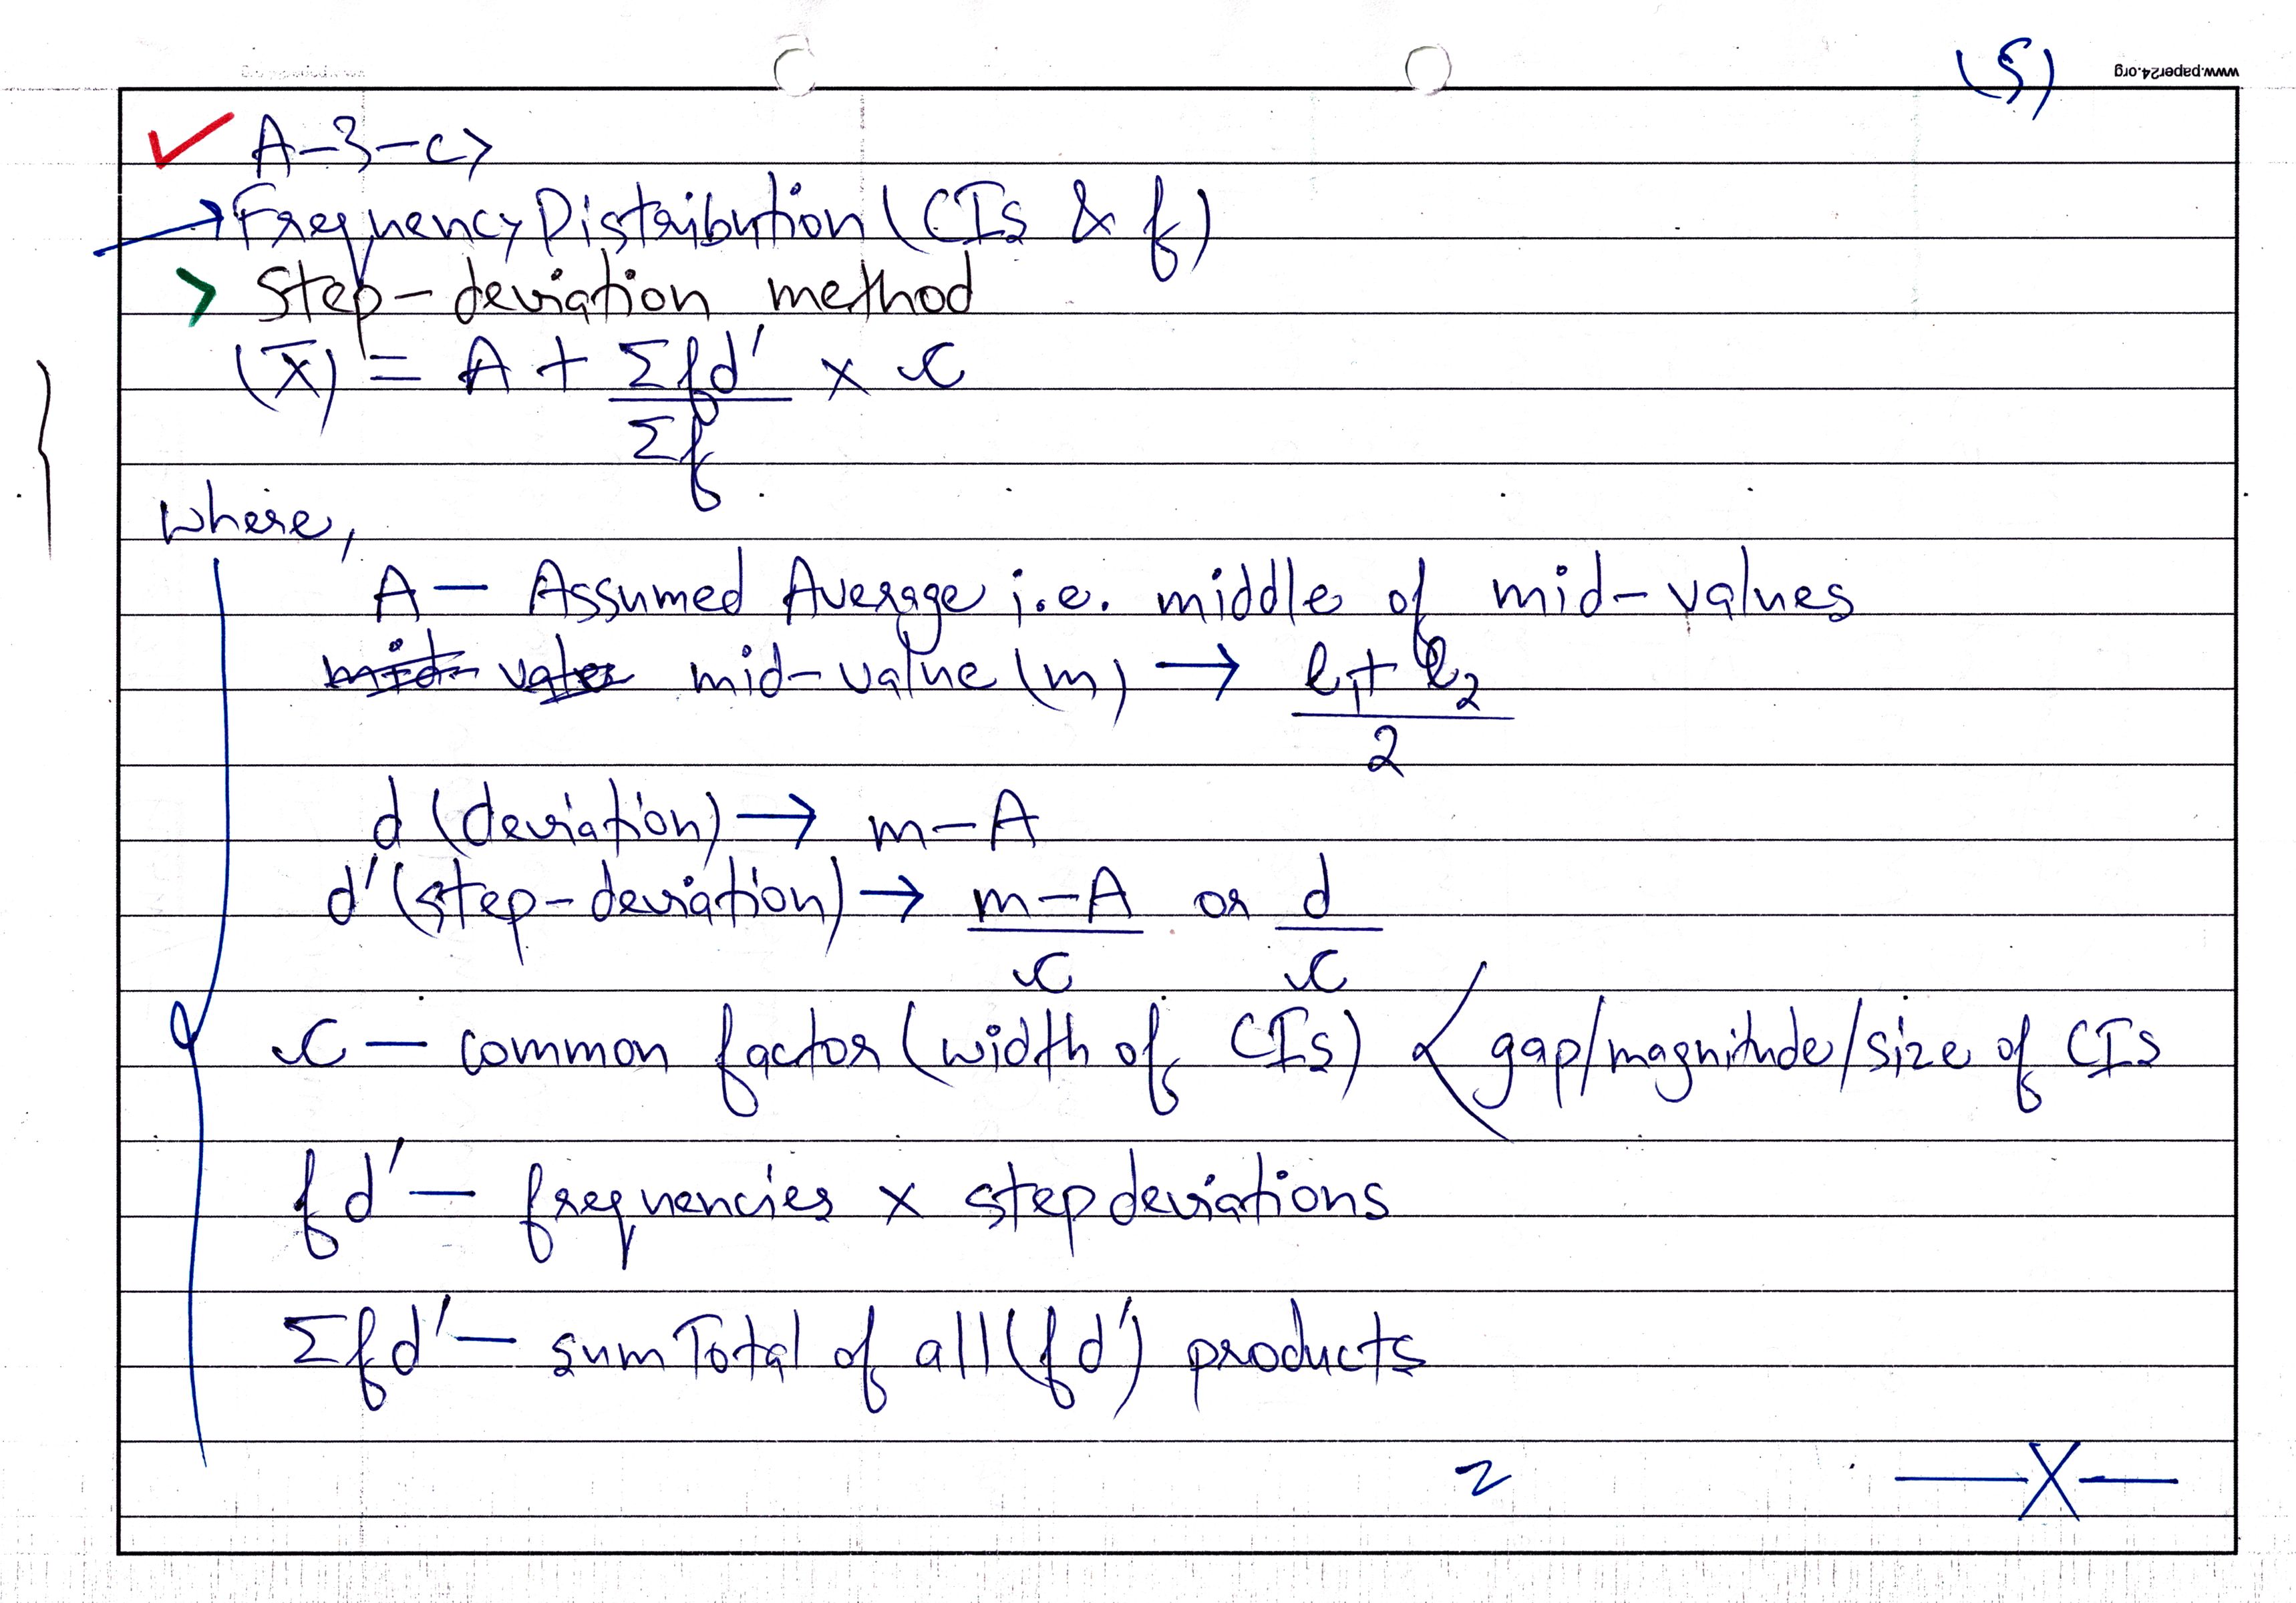 (5)
www.paper24.org
✓ A-3-c>
→ Frequency Distribution (CIs & f)
> Step-deviation method
(x̄) = A + Σfd′ / Σf × c
where,
A — Assumed Average i.e. middle of mid-values
mid-value (m) → l₁ + l₂ / 2
d (deviation) → m-A
d′ (step-deviation) → m-A / c or d / c
c — common factor (width of CIs) < gap/magnitude/size of CIs
fd′ — frequencies × step deviations
Σfd′ — sum Total of all (fd′) products
—X—